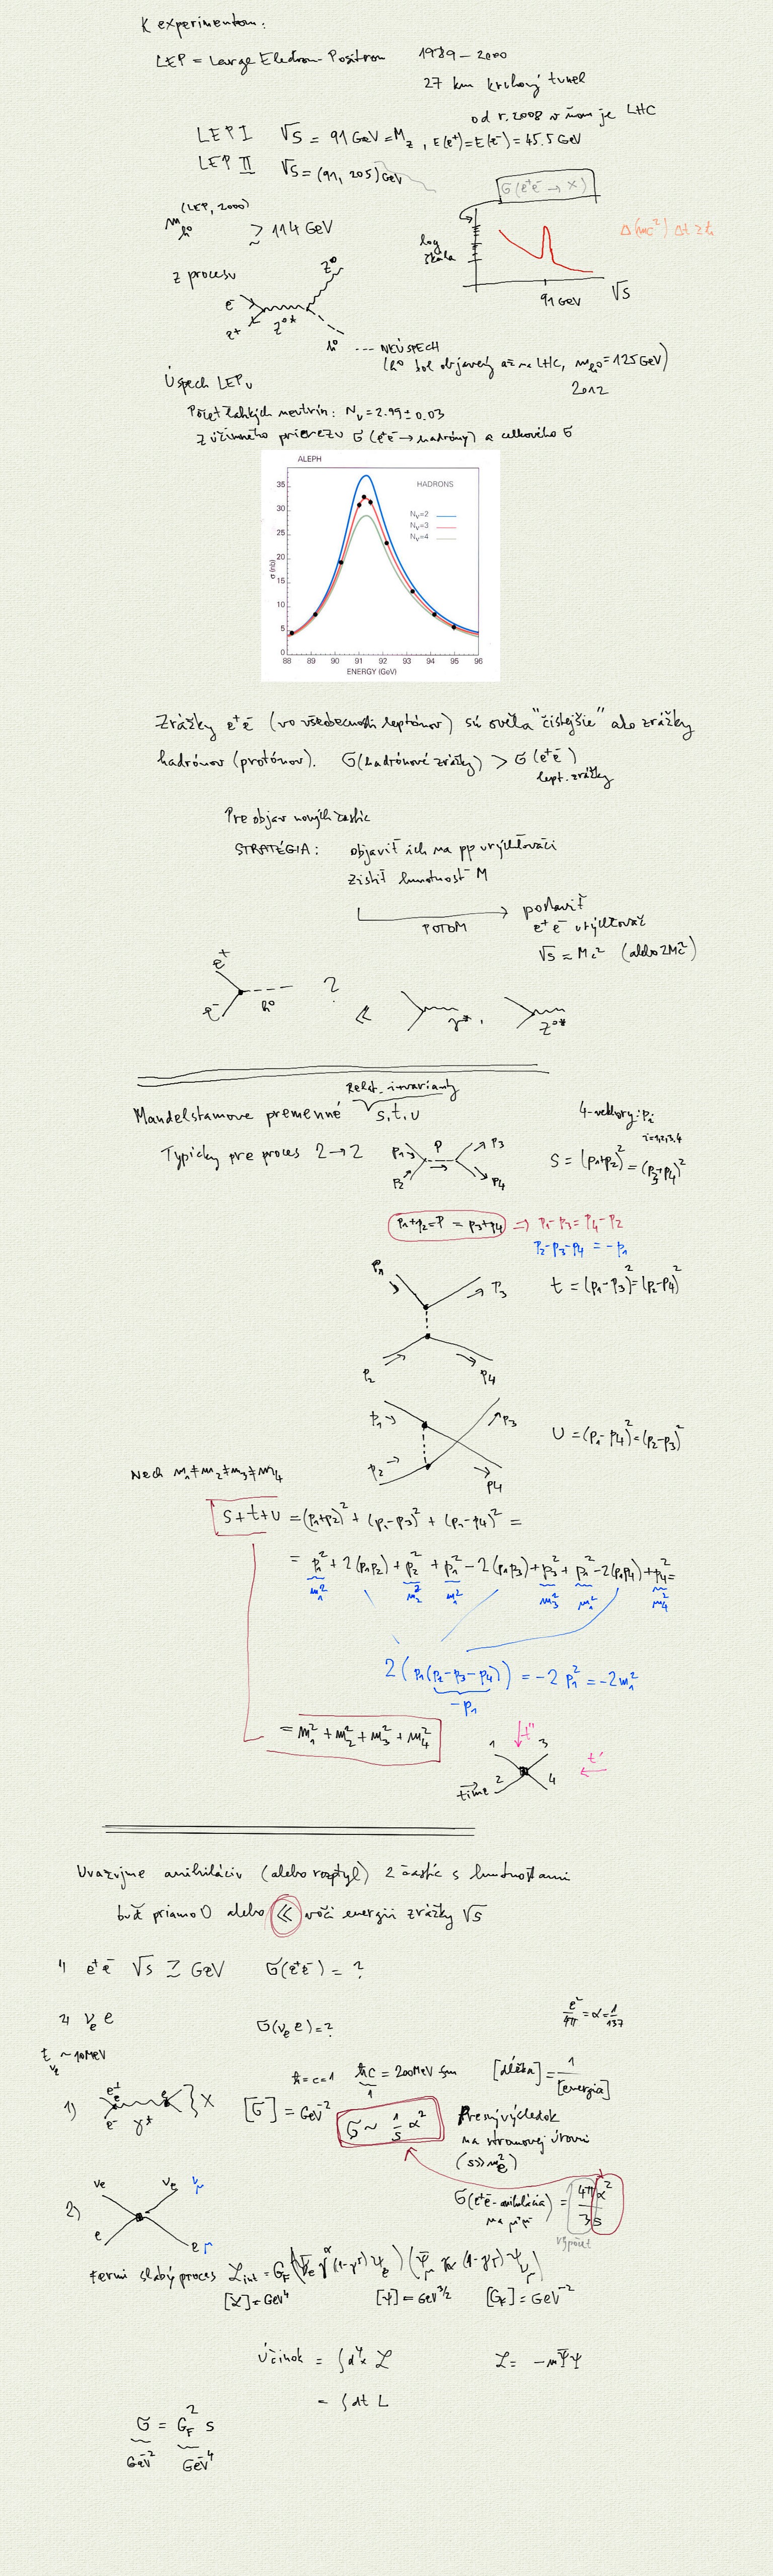 K experimentom:
LEP = Large Electron-Positron 1989 – 2000
27 km kruhový tunel
od r. 2008 v ňom je LHC
LEP I √s = 91 GeV = M_Z, E(e⁺)=E(e⁻)=45.5 GeV
LEP II √s = (91, 205) GeV
σ(e⁺e⁻ → X)
m_h⁰ (LEP, 2000) ≳ 114 GeV
log škála
Δ(mc²) Δt ≥ ħ
91 GeV √s
z procesu
e⁻ e⁺ Z⁰* Z⁰ h⁰
--- NEÚSPECH
(h⁰ bol objavený až na LHC, m_h⁰ = 125 GeV)
2012
Úspech LEPu
Počet ľahkých neutrín: N_ν = 2.99 ± 0.03
z účinného prierezu σ(e⁺e⁻ → hadróny) a celkového σ
ALEPH
HADRONS
N_ν=2
N_ν=3
N_ν=4
σ (nb)
35
30
25
20
15
10
5
0
88 89 90 91 92 93 94 95 96
ENERGY (GeV)
Zrážky e⁺e⁻ (vo všeobecnosti leptónov) sú oveľa "čistejšie" ako zrážky
hadrónov (protónov). σ(hadrónové zrážky) > σ(e⁺e⁻)
lept. zrážky
Pre objav nových častíc
STRATÉGIA: objaviť ich na pp urýchľovači
zistiť hmotnosť M
POTOM → postaviť
e⁺e⁻ urýchľovač
√s = Mc² (alebo 2Mc²)
e⁺ e⁻ h⁰ ? ≪ γ*, Z⁰*
relat. invarianty
Mandelstamove premenné s,t,u
4-vektory: p_i
i=1,2,3,4
Typicky pre proces 2→2 p₁ p₂ P p₃ p₄ s = (p₁+p₂)² = (p₃+p₄)²
p₁+p₂=P=p₃+p₄ ⇒ p₁-p₃ = p₄-p₂
p₂-p₃-p₄ = -p₁
p₁ p₃ p₂ p₄ t = (p₁-p₃)² = (p₂-p₄)²
p₁ p₃ p₂ p₄ u = (p₁-p₄)² = (p₂-p₃)²
Nech m₁≠m₂≠m₃≠m₄
s+t+u = (p₁+p₂)² + (p₁-p₃)² + (p₁-p₄)² =
= p₁² + 2(p₁p₂) + p₂² + p₁² - 2(p₁p₃) + p₃² + p₁² - 2(p₁p₄) + p₄² =
m₁² m₂² m₁² m₃² m₁² m₄²
2(p₁(p₂-p₃-p₄)) = -2p₁² = -2m₁²
-p₁
= m₁² + m₂² + m₃² + m₄²
1 2 3 4 t'' t'
time
Uvažujme anihiláciu (alebo rozptyl) 2 častíc s hmotnosťami
buď priamo 0 alebo ≪ voči energii zrážky √s
1) e⁺e⁻ √s ≳ GeV σ(e⁺e⁻) = ?
2) ν_e e σ(ν_e e) = ?
e²/4π = α = 1/137
E_νe ~ 10 MeV
ħ=c=1 ħc = 200 MeV fm [dĺžka] = 1/[energia]
1
1) e⁺ e⁻ γ* } X [σ] = GeV⁻² σ ~ 1/s α²
Presný výsledok
na stromovej úrovni
(s≫m_e²)
σ(e⁺e⁻ anihilácia na μ⁺μ⁻) = 4π α²/3 s
výpočet
2) ν_e e ν_e ν_μ e μ
Fermi slabý proces L_int = G_F (ν̄_e γ^α (1-γ⁵) ψ_e) (ψ̄_μ γ_α (1-γ⁵) ψ_νμ)
[L] = GeV⁴ [ψ] = GeV^3/2 [G_F] = GeV⁻²
Účinok = ∫d⁴x L L = -m ψ̄ψ
= ∫dt L
σ = G_F² s
GeV⁻² GeV⁻⁴